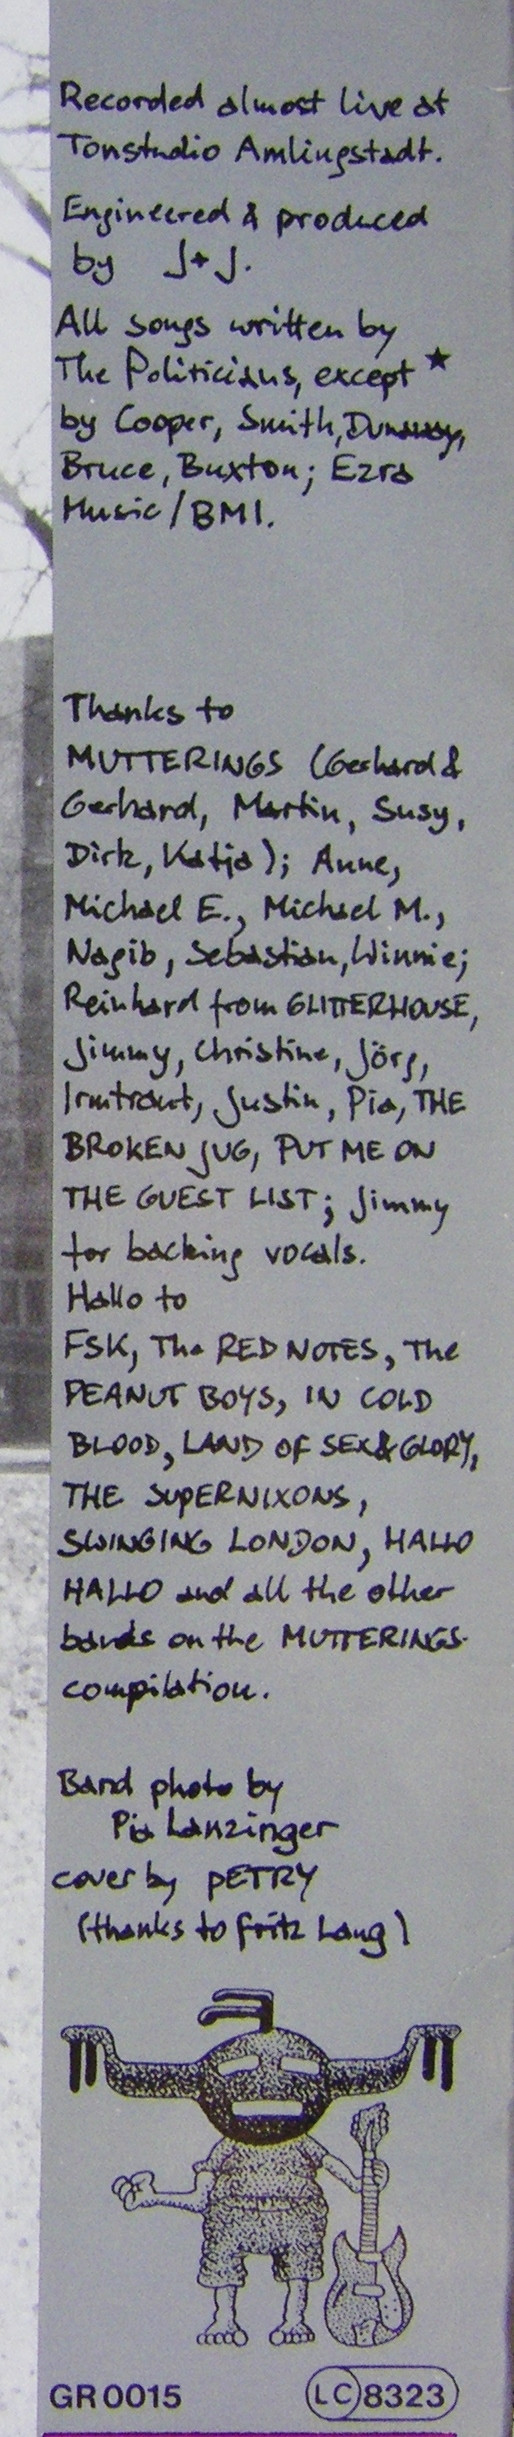 Recorded almost live at
Tonstudio Amlingstadt.
Engineered & produced
by J+J.
All songs written by
The Politicians, except ★
by Cooper, Smith, Dunaway,
Bruce, Buxton; Ezra
Music/BMI.
Thanks to
MUTTERINGS (Gerhard &
Gerhard, Martin, Susy,
Dirk, Katja); Anne,
Michael E., Michael M.,
Nagib, Sebastian, Winnie;
Reinhard from GLITTERHOUSE,
Jimmy, Christine, Jörg,
Irmtraut, Justin, Pia, THE
BROKEN JUG, PUT ME ON
THE GUEST LIST; Jimmy
for backing vocals.
Hallo to
FSK, The RED NOTES, The
PEANUT BOYS, IN COLD
BLOOD, LAND OF SEX & GLORY,
THE SUPERNIXONS,
SWINGING LONDON, HALLO
HALLO and all the other
bands on the MUTTERINGS-
compilation.
Band photo by
Pia Lanzinger
cover by PETRY
(thanks to Fritz Lang)
GR 0015 LC 8323